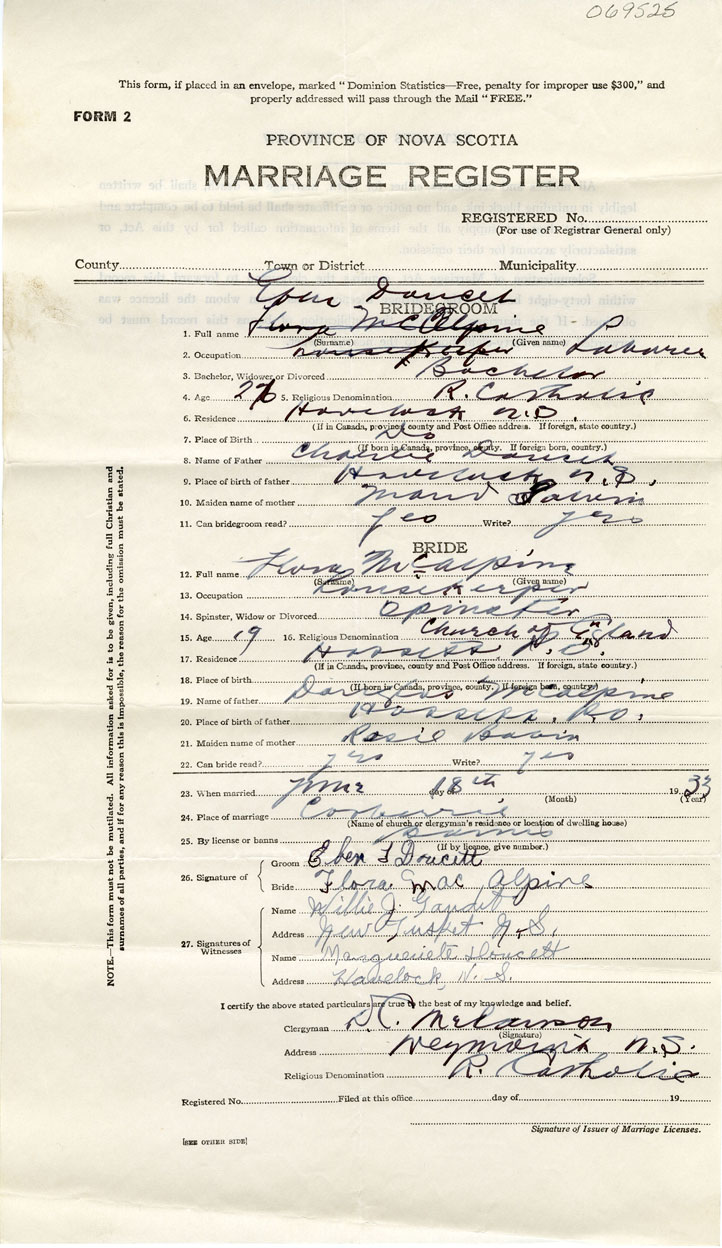 069525
This form, if placed in an envelope, marked "Dominion Statistics—Free, penalty for improper use $300," and
properly addressed will pass through the Mail "FREE."
FORM 2
PROVINCE OF NOVA SCOTIA
MARRIAGE REGISTER
REGISTERED No.
(For use of Registrar General only)
County Town or District Municipality
Eben Doucett
BRIDEGROOM
1. Full name Flora McAlpine
(Surname) (Given name)
2. Occupation Housekeeper Laborer
3. Bachelor, Widower or Divorced Bachelor
4. Age 26 5. Religious Denomination R. Catholic
6. Residence Havelock N.S.
(If in Canada, province, county and Post Office address. If foreign, state country.)
7. Place of Birth Do
(If born in Canada, province, county. If foreign born, country.)
8. Name of Father Charlie Doucett
9. Place of birth of father Havelock N.S.
10. Maiden name of mother
11. Can bridegroom read? yes Write? yes
BRIDE
12. Full name Flora McAlpine
(Surname) (Given name)
13. Occupation Housekeeper
14. Spinster, Widow or Divorced Spinster
15. Age 19 16. Religious Denomination Church of England
17. Residence
(If in Canada, province, county and Post Office address. If foreign, state country.)
18. Place of birth
(If born in Canada, province, county. If foreign born, country.)
19. Name of father Douglas McAlpine
20. Place of birth of father
21. Maiden name of mother Rosie
22. Can bride read? yes Write? yes
23. When married June 18th day of 19 33
(Month) (Year)
24. Place of marriage Corberrie
(Name of church or clergyman's residence or location of dwelling house)
25. By license or banns Banns
(If by licence, give number.)
26. Signature of Groom Eben F Doucett
Bride Flora Mac Alpine
27. Signatures of Witnesses
Name Willie J. Gaudet
Address New Tusket N.S.
Name Marguerete Doucett
Address Havelock, N.S.
I certify the above stated particulars are true to the best of my knowledge and belief.
Clergyman
(Signature)
Address Weymouth N.S.
Religious Denomination R. Catholic
Registered No. Filed at this office day of 19
Signature of Issuer of Marriage Licenses.
[SEE OTHER SIDE]
NOTE.—This form must not be mutilated. All information asked for is to be given, including full Christian and
surnames of all parties, and if for any reason this is impossible, the reason for the omission must be stated.